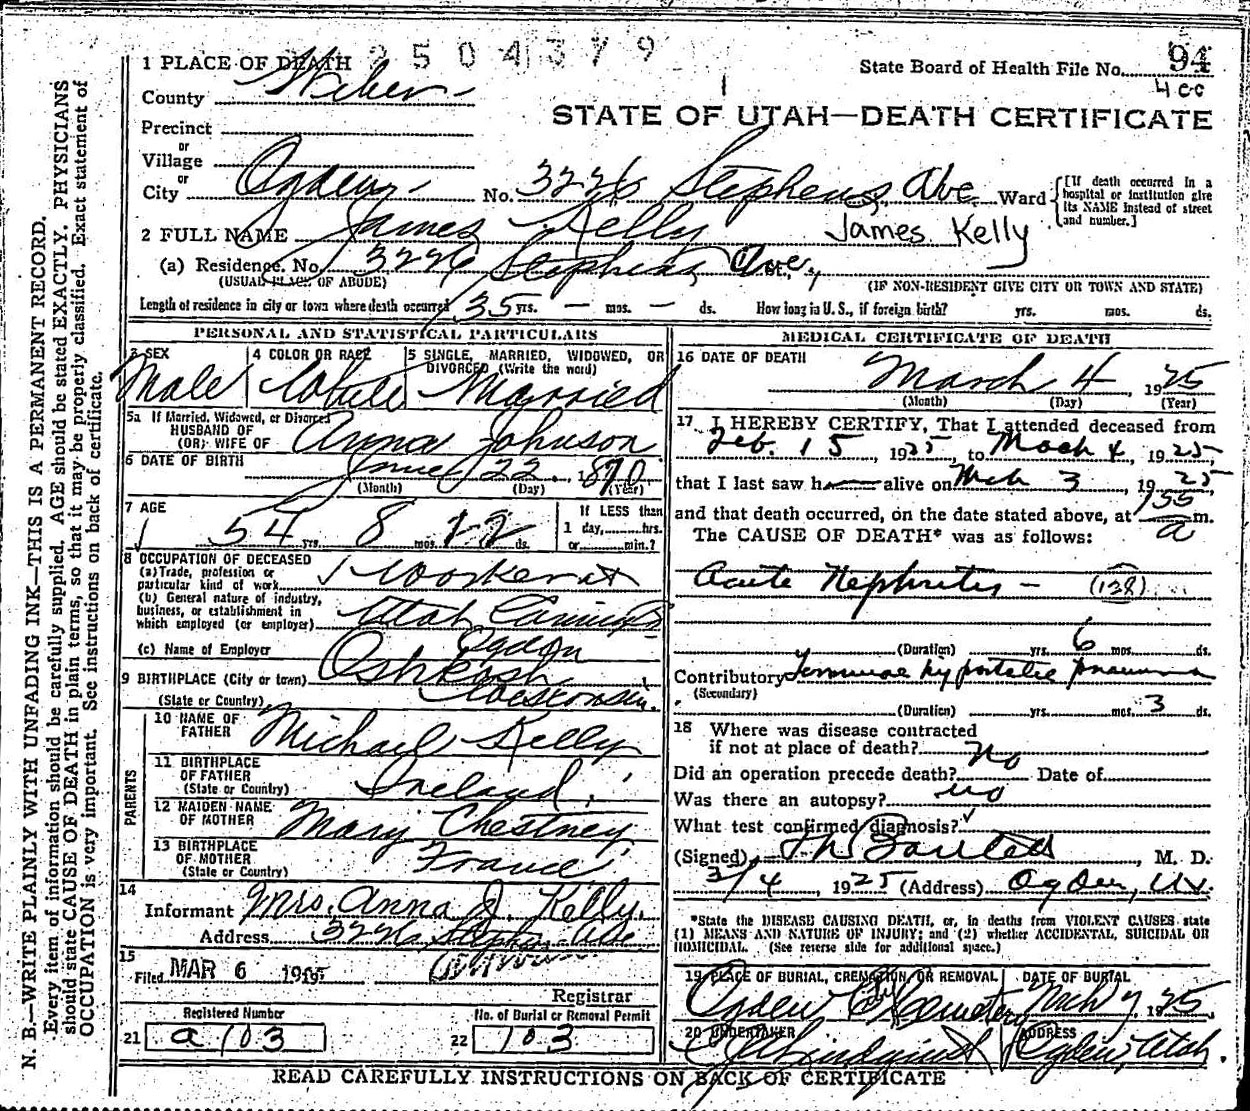 2504379
State Board of Health File No. 94
400
1 PLACE OF DEATH
County Weber
STATE OF UTAH—DEATH CERTIFICATE
Precinct
or
Village
or
City Ogden No. 3226 Stephens Ave. Ward {[If death occurred in a hospital or institution give its NAME instead of street and number.]
2 FULL NAME James Kelly James Kelly
(a) Residence. No. 3226 Stephens Ave,
(USUAL PLACE OF ABODE) (IF NON-RESIDENT GIVE CITY OR TOWN AND STATE)
Length of residence in city or town where death occurred 35 yrs. — mos. — ds. How long in U. S., if foreign birth? yrs. mos. ds.
PERSONAL AND STATISTICAL PARTICULARS
3 SEX 4 COLOR OR RACE 5 SINGLE, MARRIED, WIDOWED, OR DIVORCED (Write the word)
Male White Married
5a If Married, Widowed, or Divorced
HUSBAND OF
(OR) WIFE OF Anna Johnson
6 DATE OF BIRTH June 22 1870
(Month) (Day) (Year)
7 AGE 54 yrs. 8 mos. 12 ds. If LESS than 1 day, hrs. or min.?
8 OCCUPATION OF DECEASED
(a) Trade, profession or
particular kind of work Worker at
(b) General nature of industry,
business, or establishment in
which employed (or employer) Utah Canning
(c) Name of Employer Ogden
9 BIRTHPLACE (City or town) Oshkosh
(State or Country) Wisconsin.
PARENTS
10 NAME OF FATHER Michael Kelly
11 BIRTHPLACE OF FATHER
(State or Country) Ireland.
12 MAIDEN NAME OF MOTHER Mary Chestney
13 BIRTHPLACE OF MOTHER
(State or Country) France
14
Informant Mrs. Anna J. Kelly.
Address 3226 Stephens Ave
15
Filed MAR 6 19
Registrar
Registered Number No. of Burial or Removal Permit
21 a 103 22 103
MEDICAL CERTIFICATE OF DEATH
16 DATE OF DEATH
March 4, 1925
(Month) (Day) (Year)
17 I HEREBY CERTIFY, That I attended deceased from
Feb. 15, 1925, to Mach 4, 1925
that I last saw h alive on Mch 3, 1925
and that death occurred, on the date stated above, at 155 a m.
The CAUSE OF DEATH* was as follows:
Acute Nephritis — (128)
(Duration) yrs. 6 mos. ds.
Contributory Terminal hypostatic pneumonia
(Secondary)
(Duration) yrs. mos. 3 ds.
18 Where was disease contracted
if not at place of death? no
Did an operation precede death? Date of
Was there an autopsy? no
What test confirmed diagnosis?
(Signed), M. D.
3/4, 1925 (Address) Ogden, Ut.
*State the DISEASE CAUSING DEATH, or, in deaths from VIOLENT CAUSES, state
(1) MEANS AND NATURE OF INJURY; and (2) whether ACCIDENTAL, SUICIDAL OR
HOMICIDAL. (See reverse side for additional space.)
19 PLACE OF BURIAL, CREMATION, OR REMOVAL DATE OF BURIAL
Ogden City Cemetery Mch 7, 1925
20 UNDERTAKER ADDRESS
Lindquist Ogden, Utah.
READ CAREFULLY INSTRUCTIONS ON BACK OF CERTIFICATE
N. B.—WRITE PLAINLY WITH UNFADING INK—THIS IS A PERMANENT RECORD.
Every item of information should be carefully supplied. AGE should be stated EXACTLY. PHYSICIANS
should state CAUSE OF DEATH in plain terms, so that it may be properly classified. Exact statement of
OCCUPATION is very important. See instructions on back of certificate.